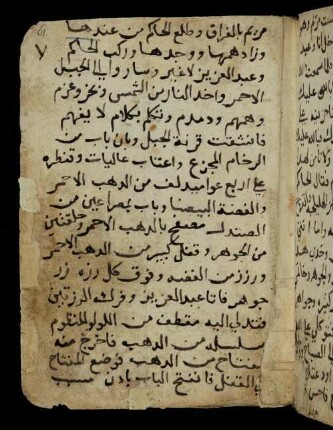 مريم بالفراق وطلع الحاكم من عندها
وزاد همها ووجدها وركب الحاكم
وعبد العزيز لا غير وسار والي الجبل
الاحمر واخد النار من الشمس وبخر وعزم
وهمهم ودمدم وتكلم بكلام لا يفهم
فانشقت قرنة الجبل وبان باب من
الرخام المجزع واعتاب عاليات وقنطره
علي اربع عواميد من الدهب الاحمر
والفضة البيضا وباب بمصراعين من
الصندل مصفح بالدهب الاحمر وحلقتين
من الجوهر وقفل كبير من الدهب الاحمر
ورزز من الفضه وفوق كل رزه زر
جوهر فاتا عبد العزيز وفرك الرزتين
فتدلي اليه مقطف من اللولو المنظوم
بسلسله من الدهب فاخرج منه
مفتاح من الدهب فوضع المفتاح
في القفل فانفتح الباب بادن